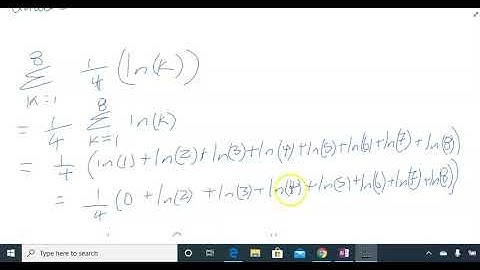 8
∑ 1/4 (ln(k))
k=1
= 1/4 8∑k=1 ln(k)
= 1/4 (ln(1)+ln(2)+ln(3)+ln(4)+ln(5)+ln(6)+ln(7)+ln(8))
= 1/4 (0 +ln(2) +ln(3)+ln(4)+ln(5)+ln(6)+ln(7)+ln(8))
Type here to search